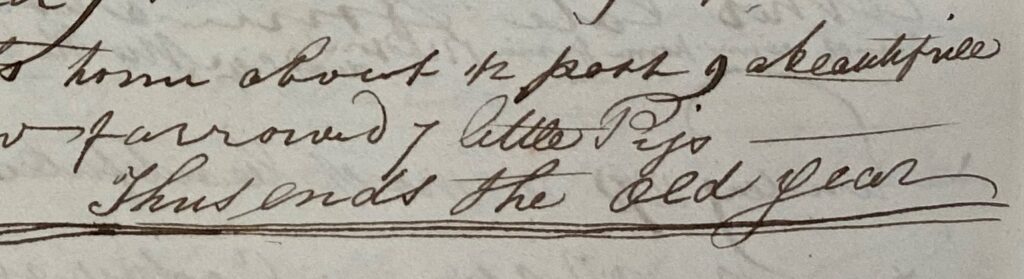 home about ½ past 9 a beautifull
farrowed 7 little Pigs
Thus ends the old year